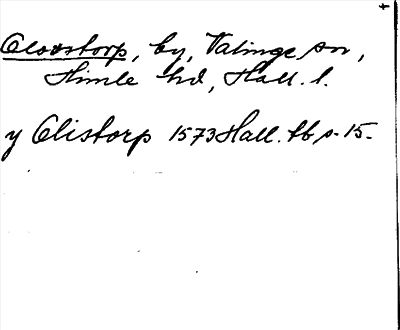 Olofstorp, by, Valinge sn,
Himle hd, Hall. l.
y Olistorp 1573 Hall. tb s. 15.